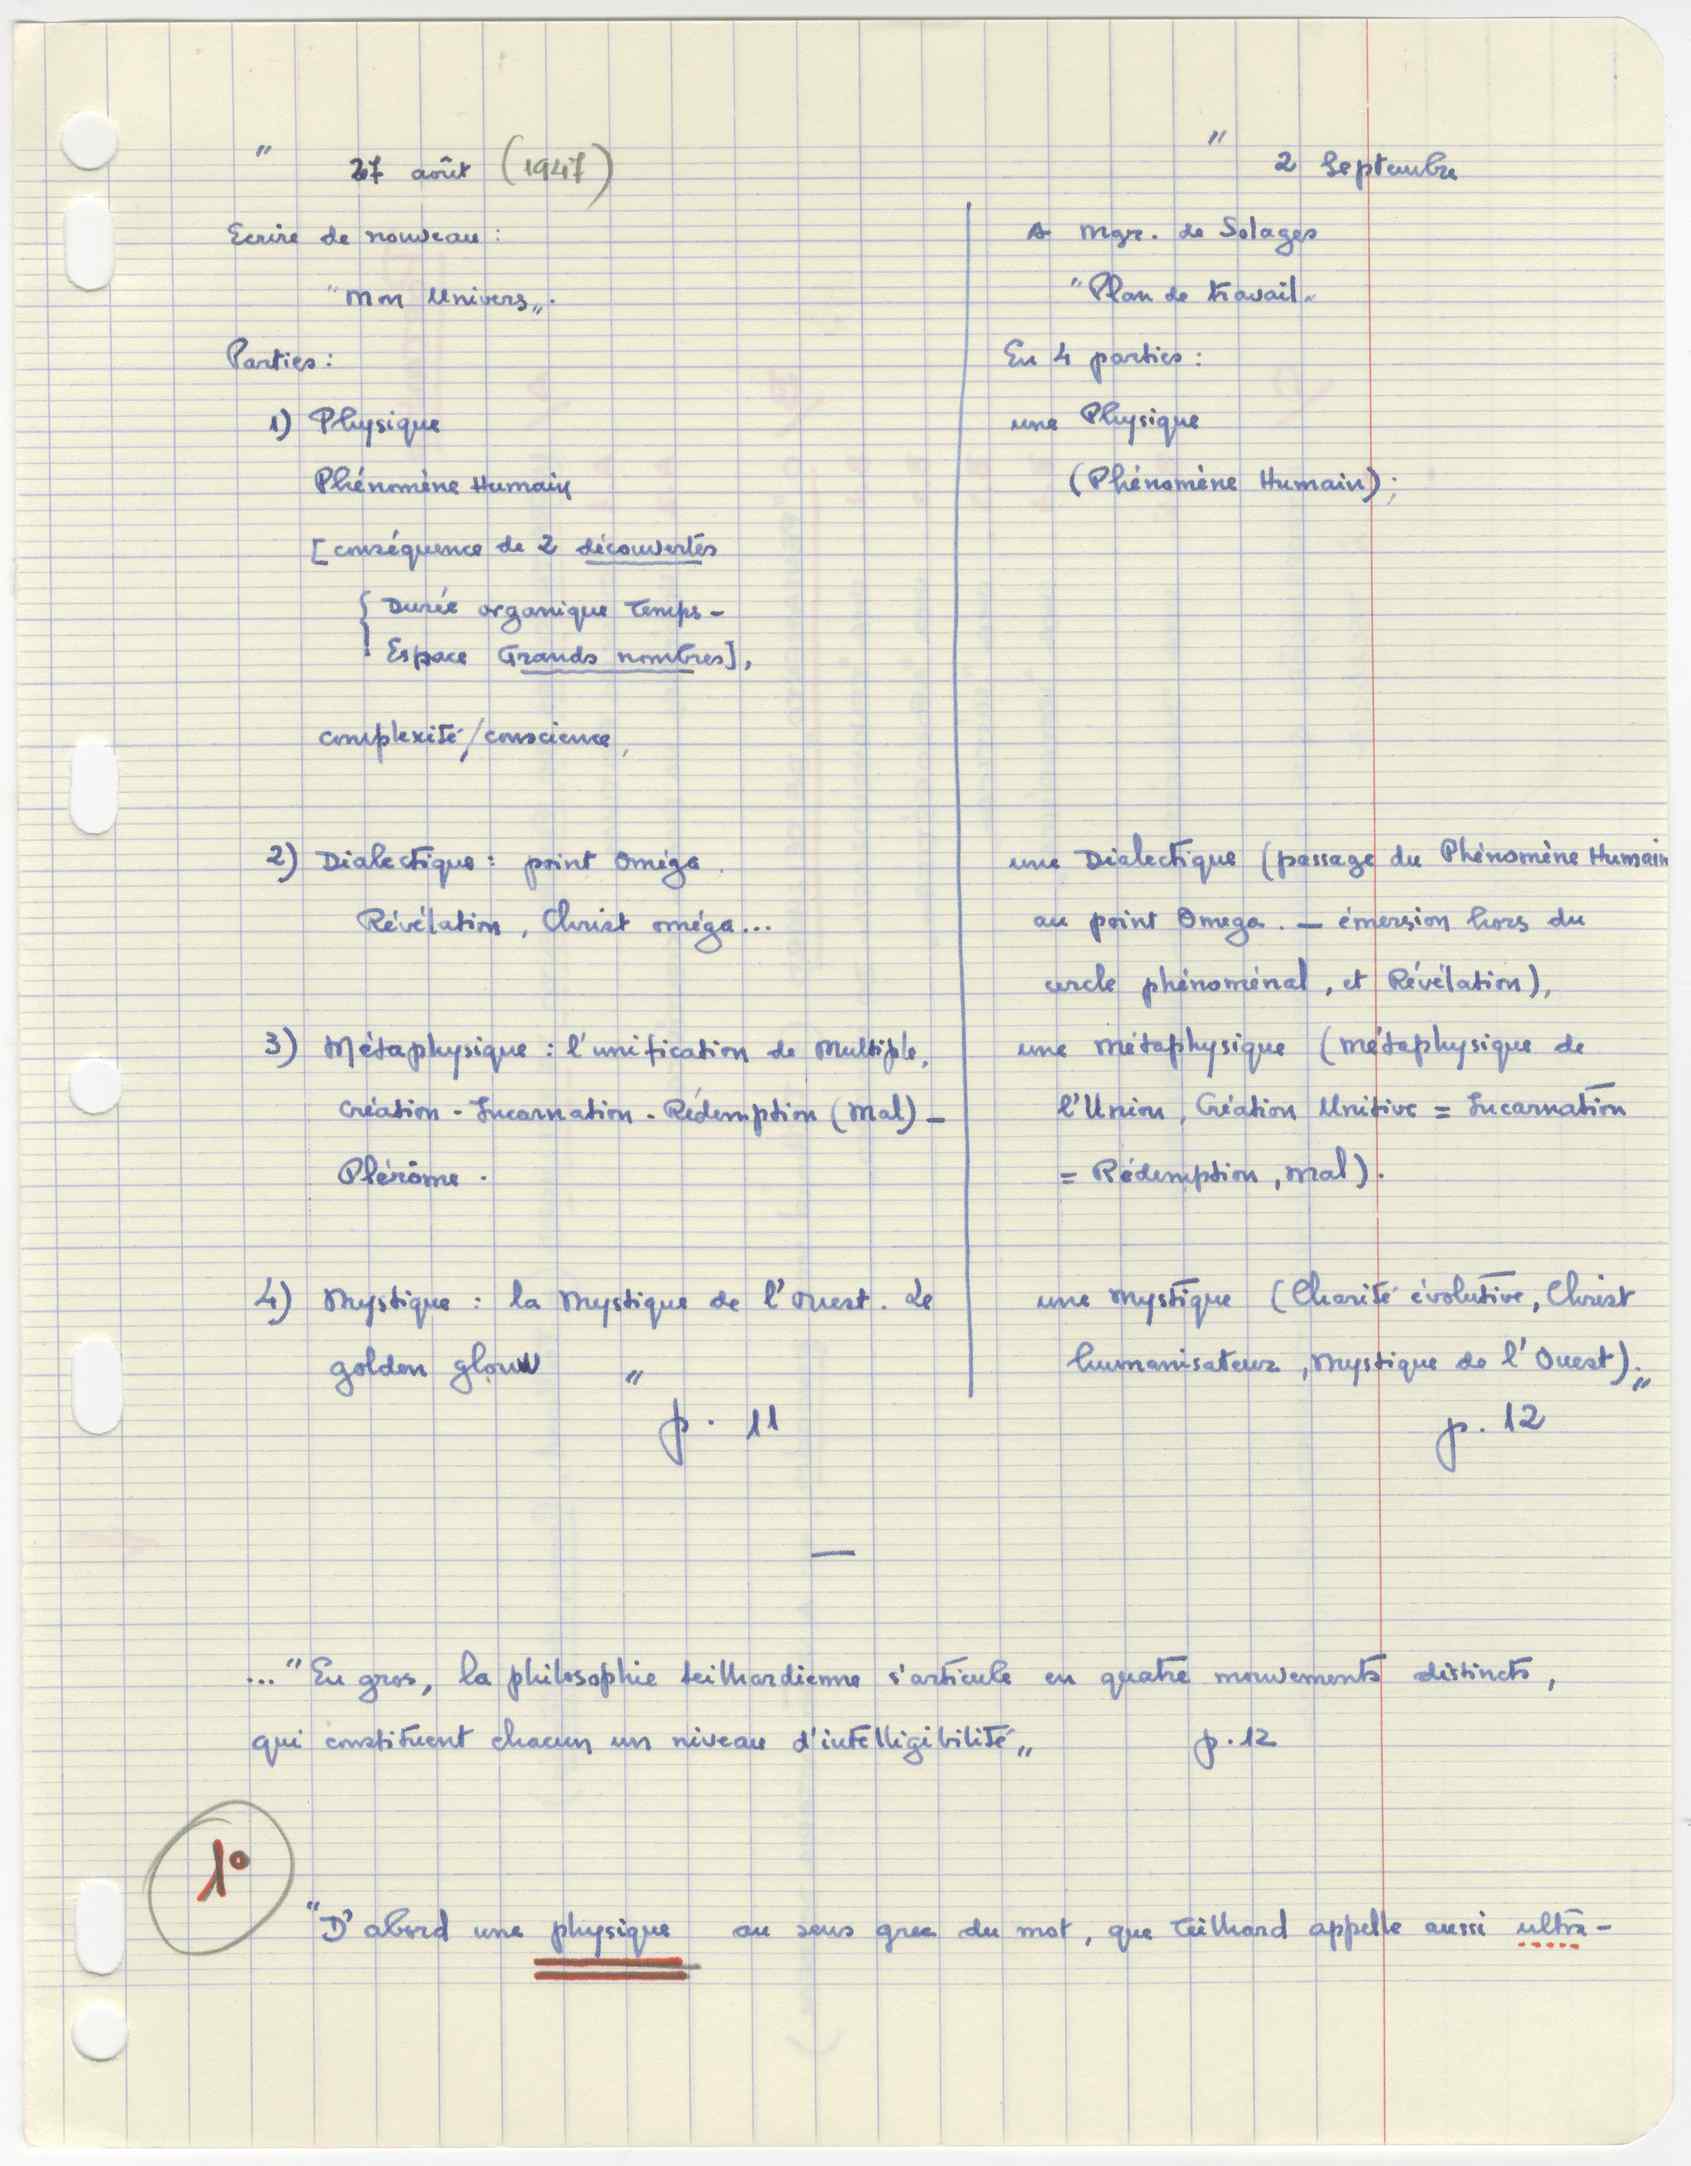 " 27 août (1947)
Ecrire de nouveau :
"Mon Univers„.
Parties :
1) Physique
Phénomène Humain
[conséquence de 2 découvertes
{ Durée organique Temps -
Espace Grands nombres],
complexité/conscience,
2) Dialectique : point Oméga.
Révélation, Christ oméga...
3) Métaphysique : l'unification de Multiple,
Création - Incarnation - Rédemption (Mal) -
Plérôme.
4) Mystique : la Mystique de l'Ouest. Le
golden glow „
p. 11
" 2 Septembre
A Mgr. de Solages
"Plan de travail„
En 4 parties :
une Physique
(Phénomène Humain);
une Dialectique (passage du Phénomène Humain
au point Omega. — émersion hors du
cercle phénoménal, et Révélation),
une métaphysique (métaphysique de
l'Union, Création Unitive = Incarnation
= Rédemption, mal).
une mystique (Charité évolutive, Christ
humanisateur, Mystique de l'Ouest).„
p. 12
—
..."En gros, la philosophie teilhardienne s'articule en quatre mouvements distincts,
qui constituent chacun un niveau d'intelligibilité„ p. 12
1°
"D'abord une physique au sens grec du mot, que Teilhard appelle aussi ultra-